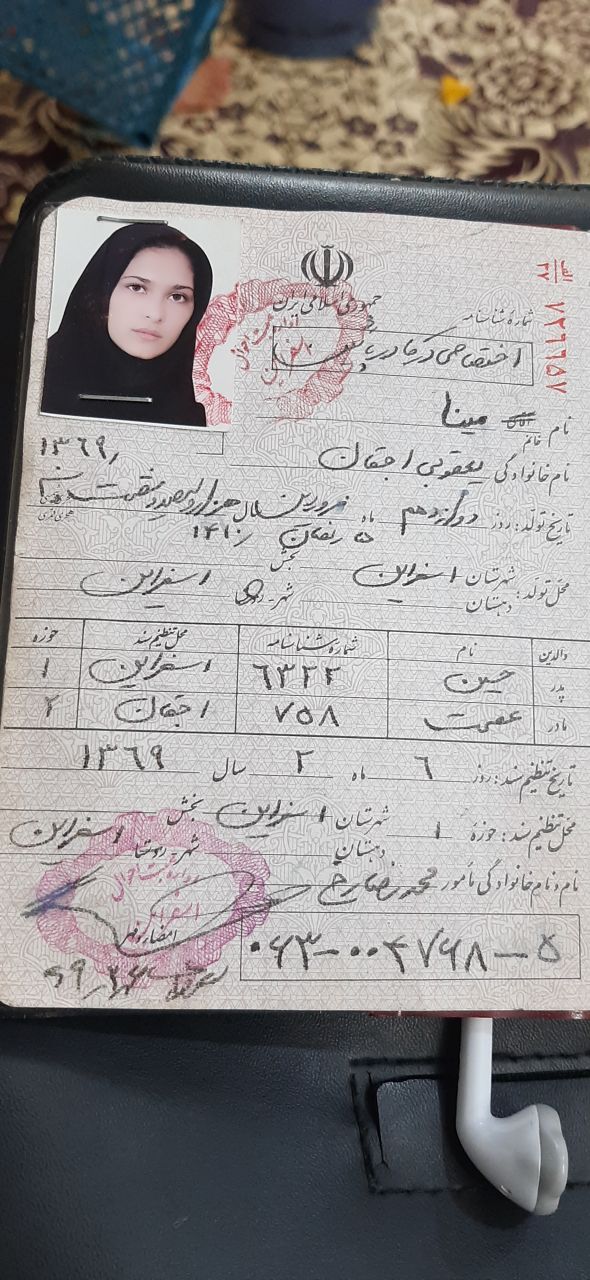 الف
۲۷
۷۲۶۶۵۷
جمهوری اسلامی ایران
شماره شناسنامه
اختصاصی در کادر پائین
نام آقای خانم مینا
نام خانوادگی یعقوبی اجقان
۱۳۶۹/
تاریخ تولد: روز دوازدهم ماه فروردین سال هزار و سیصد و شصت و نه
هجری شمسی
۵ رمضان ۱۴۱۰
هجری قمری
محل تولد: شهرستان اسفراین بخش
دهستان شهر - روستا اسفراین
والدین نام شماره شناسنامه محل تنظیم سند حوزه
پدر حسین ۶۳۲۲ اسفراین ۱
مادر عصمت ۷۵۸ اجقان ۲
تاریخ تنظیم سند: روز ۶ ماه ۲ سال ۱۳۶۹
محل تنظیم سند: حوزه ۱ شهرستان اسفراین بخش
دهستان شهر - روستا اسفراین
نام و نام خانوادگی مأمور محمدرضا
امضاء و مهر
۰۶۳-۰۰۴۷۶۸-۵